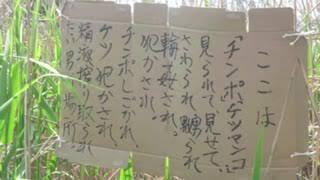 ここは
「チンポ、ケツマンコ」
見られて、見せて、
さわられ、嬲られ
輪姦され。
犯かされ、
チンポしごかれ、
ケツ犯かされ、
精液搾り取られ
た男の場所